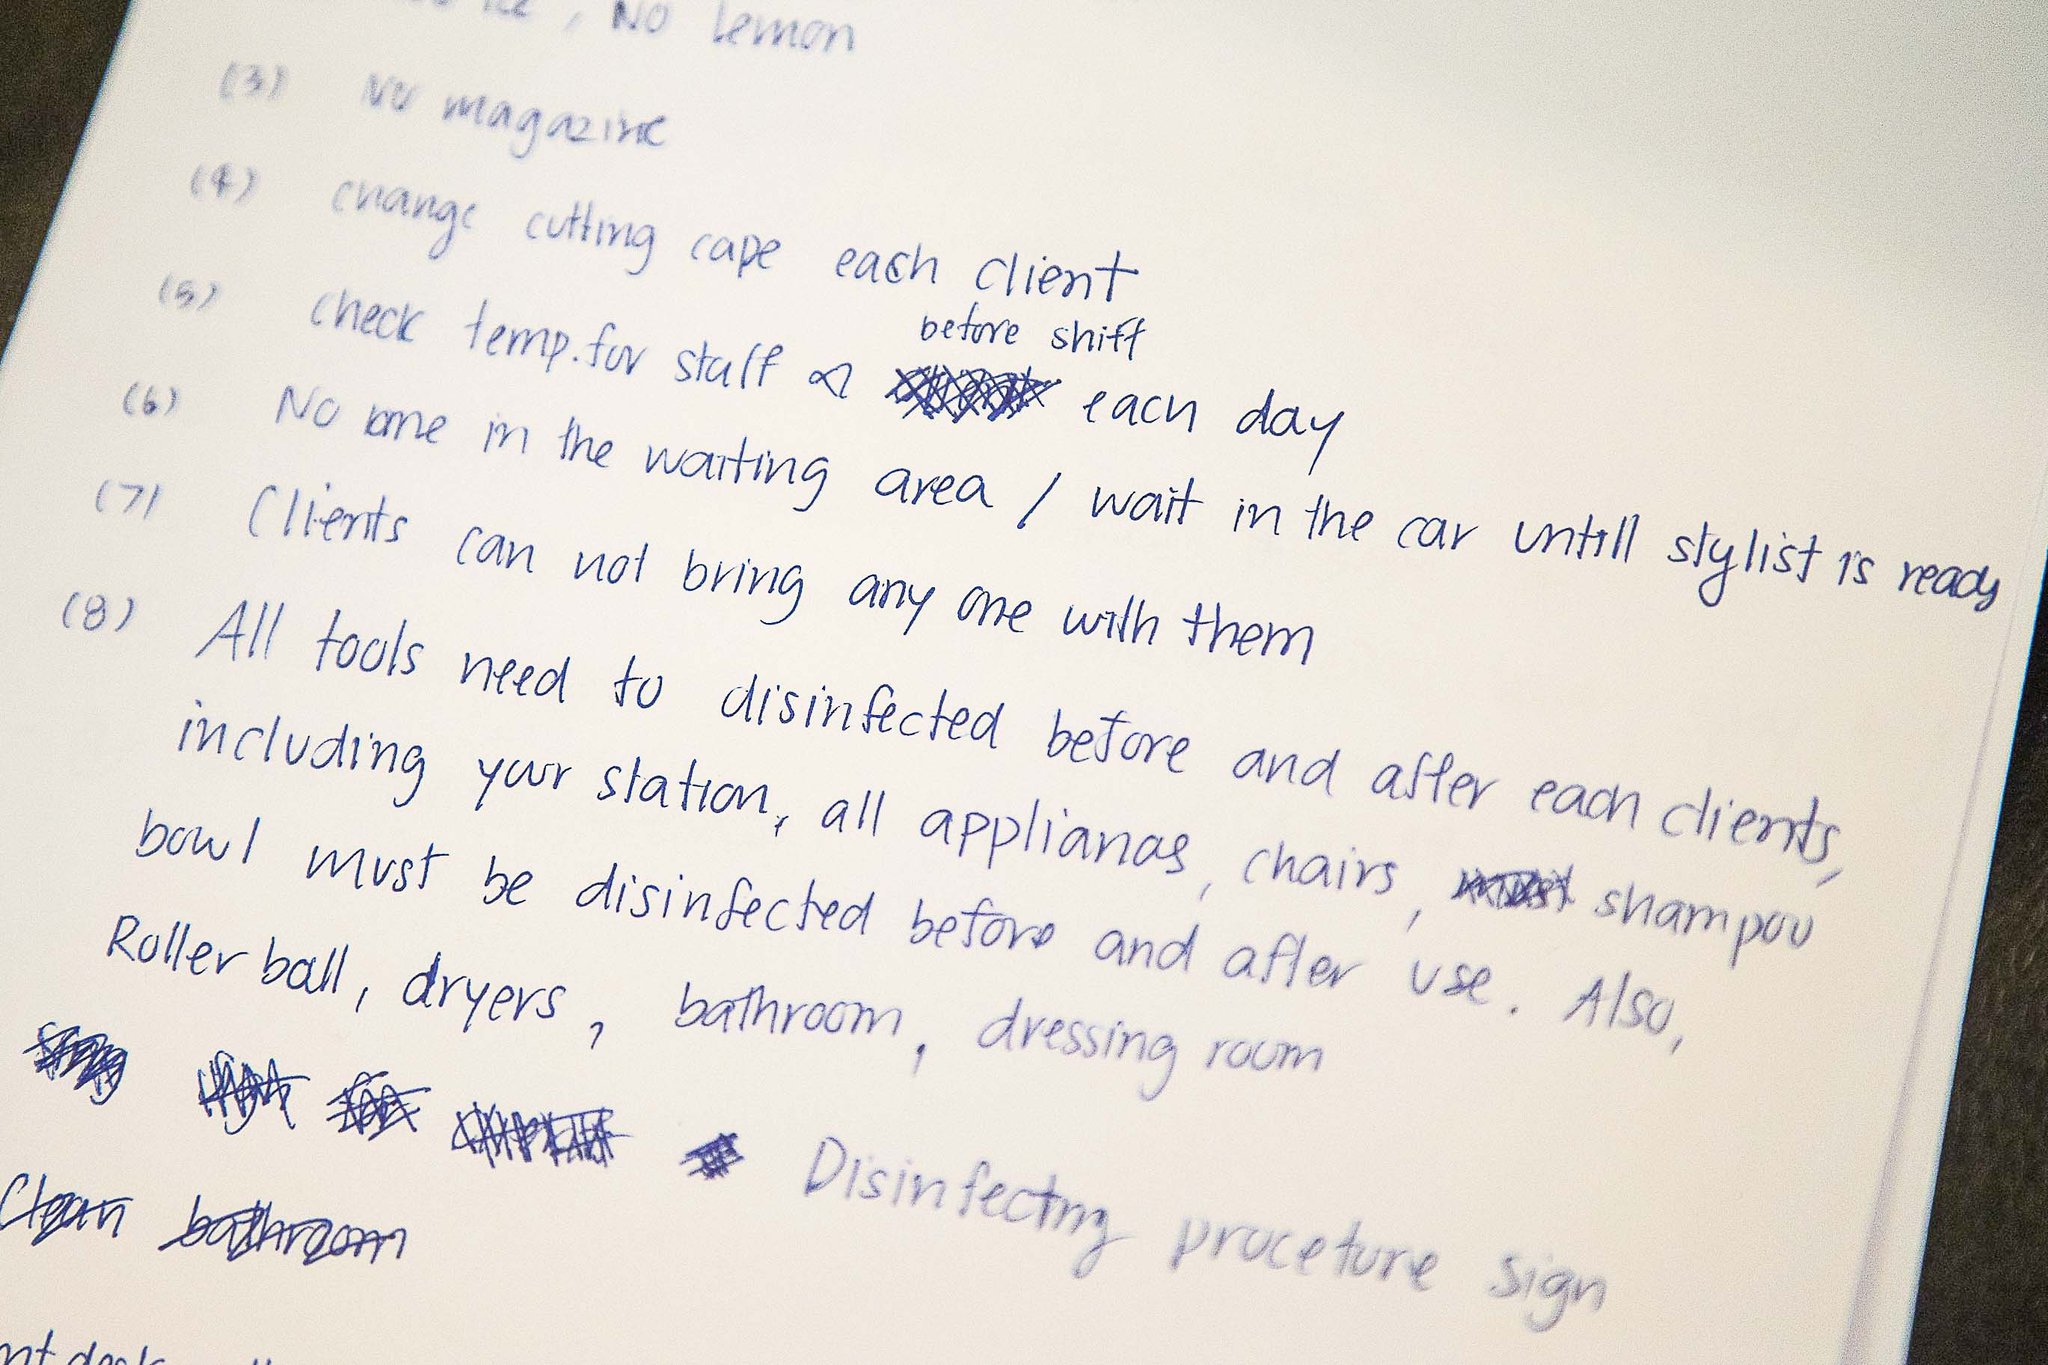 ice, No lemon
(3) No magazine
(4) change cutting cape each client
before shift
(5) check temp. for staff & each day
(6) No one in the waiting area / wait in the car untill stylist is ready
(7) Clients can not bring any one with them
(8) All tools need to disinfected before and after each clients,
including your station, all applianas, chairs, shampoo
bowl must be disinfected before and after use. Also,
Roller ball, dryers, bathroom, dressing room
Disinfecting proceture sign
Clean bathroom